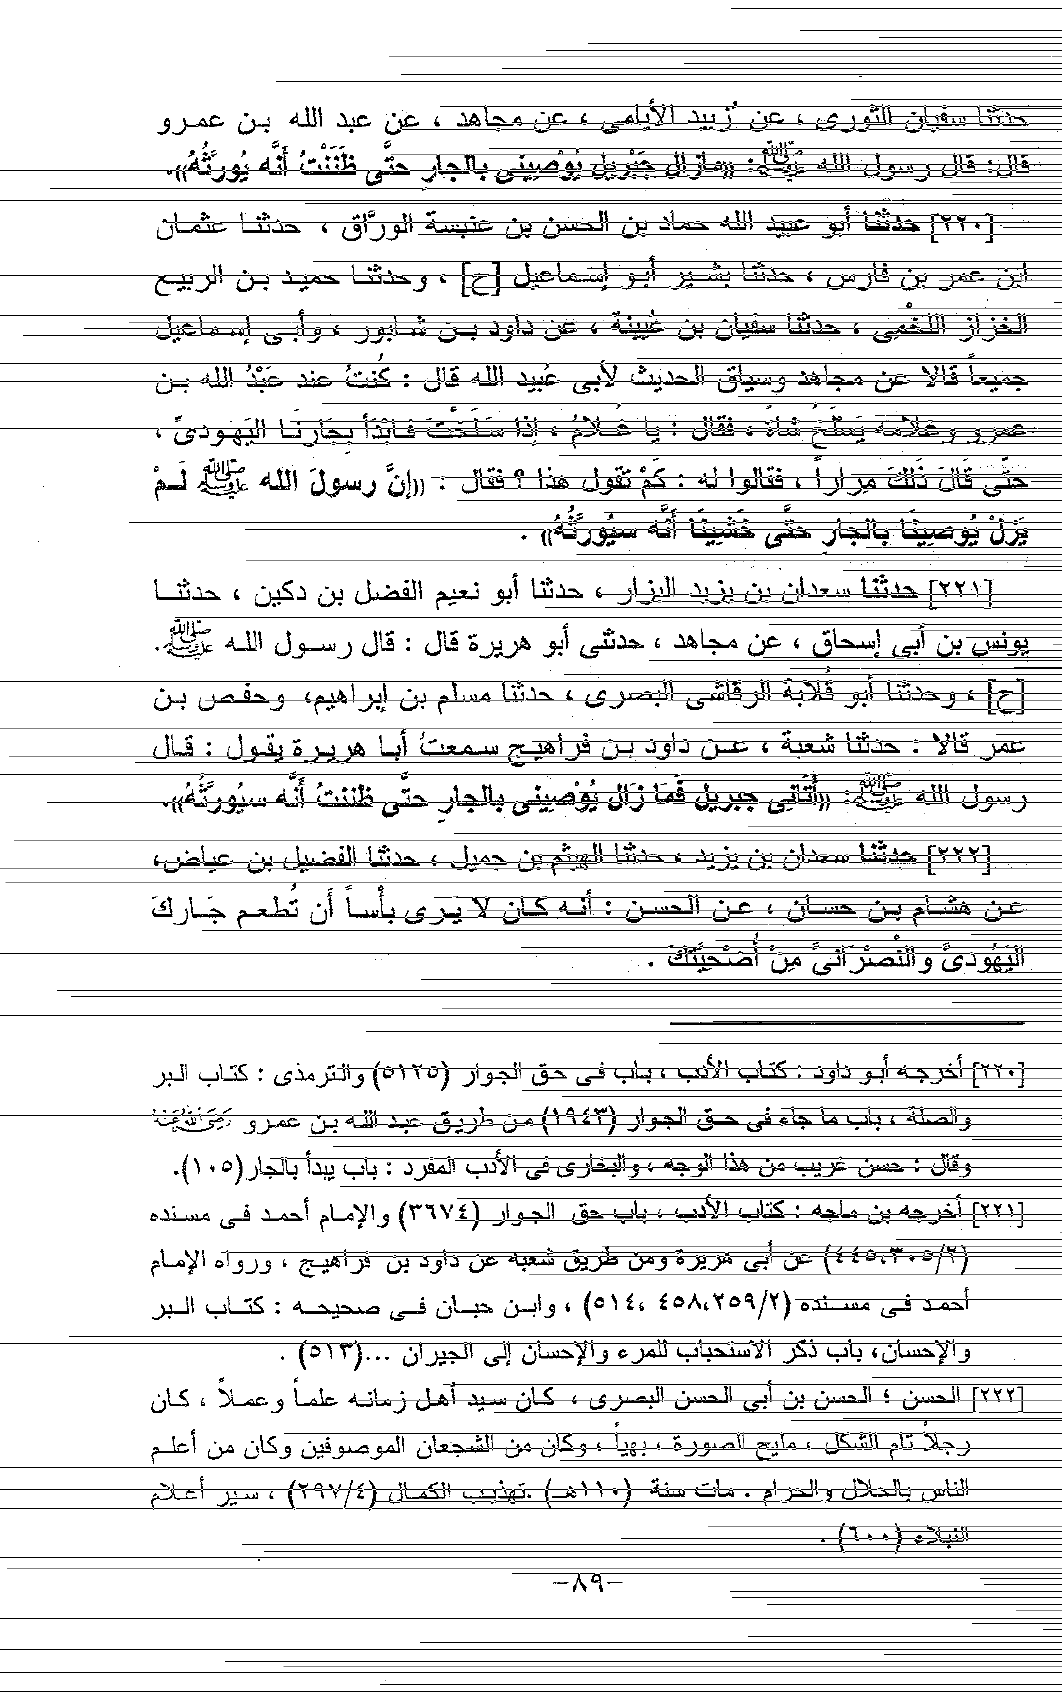 حدثنا سفيان الثورى ، عن زُبيد الأيامى ، عن مجاهد ، عن عبد الله بن عمرو
قال: قال رسول الله ﷺ: «مازال جَبْريل يُوْصينى بالجار حتَّى ظَنَنْتُ أَنَّه يُورَثُهُ».
[٢٢٠] حدثنا أبو عبيد الله حماد بن الحسن بن عنبسة الورَّاق ، حدثنا عثمان
ابن عمر بن فارس ، حدثنا بشير أبو إسماعيل [ح] ، وحدثنا حميد بن الربيع
الخزاز اللخْمِى ، حدثنا سفيان بن عُيينة ، عن داود بن شابور ، وأبى إسماعيل
جميعاً قالا عن مجاهد وسياق الحديث لأبى عُبيد الله قال : كُنتُ عند عَبْدُ الله بن
عمرو وغلامه يَسْلَخُ شَاةً ، فقال : يا غُلامُ ، إذا سَلَخْتَ فابْدَأ بِجَارِنَا اليَهودىِّ ،
حتَّى قَالَ ذَلكَ مِرَاراً ، فقالوا له : كَمْ تقول هذا ؟ فقال : «إنَّ رسولَ الله ﷺ لَمْ
يَزَلْ يُوصينَا بالجار حتَّى خَشينَا أنَّه سيُورثُهُ» .
[٢٢١] حدثنا سعدان بن يزيد البزار ، حدثنا أبو نعيم الفضل بن دكين ، حدثنا
يونس بن أبى إسحاق ، عن مجاهد ، حدثنى أبو هريرة قال : قال رسول الله ﷺ.
[ح] ، وحدثنا أبو قُلابةَ الرقاشى البصرى ، حدثنا مسلم بن إبراهيم، وحفص بن
عمر قالا : حدثنا شعبة ، عن داود بن فراهيج سمعتُ أبا هريرة يقول : قال
رسول الله ﷺ: «أَتَانِى جبريل فَمَا زَال يُوْصينى بالجارِ حتَّى ظننتُ أَنَّه سيُورِثُهُ».
[٢٢٢] حدثنا سعدان بن يزيد ، حدثنا الهيثم بن جميل ، حدثنا الفضيل بن عياض،
عن هشام بن حسان ، عن الحسن : أنه كان لا يرى بأساً أن تُطعم جَاركَ
اليَهُودىَّ والنْصرَانىَّ مِنْ أُضْحيَّتكَ .
[٢٢٠] أخرجه أبو داود : كتاب الأدب ، باب فى حق الجوار (٥١٢٥) والترمذى : كتاب البر
والصلة ، باب ما جاء فى حق الجوار (١٩٤٣) من طريق عبد الله بن عمرو
وقال : حسن غريب من هذا الوجه ، والبخارى فى الأدب المفرد : باب يبدأ بالجار(١٠٥).
[٢٢١] أخرجه بن ماجه : كتاب الأدب ، باب حق الجوار (٣٦٧٤) والإمام أحمد فى مسنده
(٤٤٥،٣٠٥/٢) عن أبى هريرة ومن طريق شعبه عن داود بن فراهيج ، ورواه الإمام
أحمد فى مسنده (٥١٤، ٤٥٨،٢٥٩/٢) ، وابن حبان فى صحيحه : كتاب البر
والإحسان، باب ذكر الاستحباب للمرء والإحسان إلى الجيران ...(٥١٣) .
[٢٢٢] الحسن ؛ الحسن بن أبى الحسن البصرى ، كان سيد أهل زمانه علماً وعملاً ، كان
رجلاً تام الشكل ، مليح الصورة ، بهياً ، وكان من الشجعان الموصوفين وكان من أعلم
الناس بالحلال والحرام . مات سنة (١١٠هـ). تهذيب الكمال (٢٩٧/٤) ، سير أعلام
النبلاء (٦٠٠) .
-٨٩-